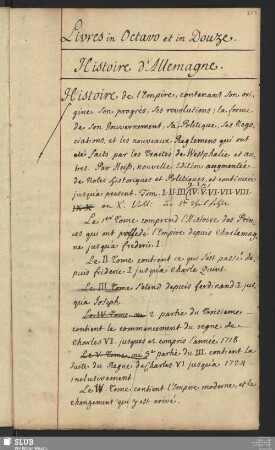 Livres in Octavo et in Douze.
Histoire d'Allemagne.
Histoire de l'Empire, contenant son ori-
gine son progrès, ses revolutions; la forme
de son Gouvernement, sa Politique, ses Nego-
ciations, et les nouveaux Reglemens qui ont
eté faits par les Traités de Westphalie et au-
tres. Par Heiss, nouvelle edition augmentée
de Notes historiques et Politiques, et continuée
jusqu'a present. Tom. I. II. III. IV. V. VI. VII. VIII.
IX. X. en X. Voll.
Le 1er Tome comprend l'Histoire des Prin-
ces qui ont possedé l'Empire depuis Charlemag-
ne jusqu'a frederic I.
Le II Tome contient ce qui s'est passé de-
puis frideric I jusqu'a Charle Quint.
Le III Tome s'etend depuis ferdinand I. jus-
qu'a Joseph.
Le IV Tome, ou 2 partie du Troisieme
contient le commencement du regne de
Charles VI. jusques et compris l'année 1718.
Le V Tome, ou 3e partie du III. contient la
suite du Regne de Charles VI jusqu'a 1724
inclusivement.
Le Tome contient l'Empire moderne, et le
changement qui y est arrivé.
SLUB
Wir führen Wissen.